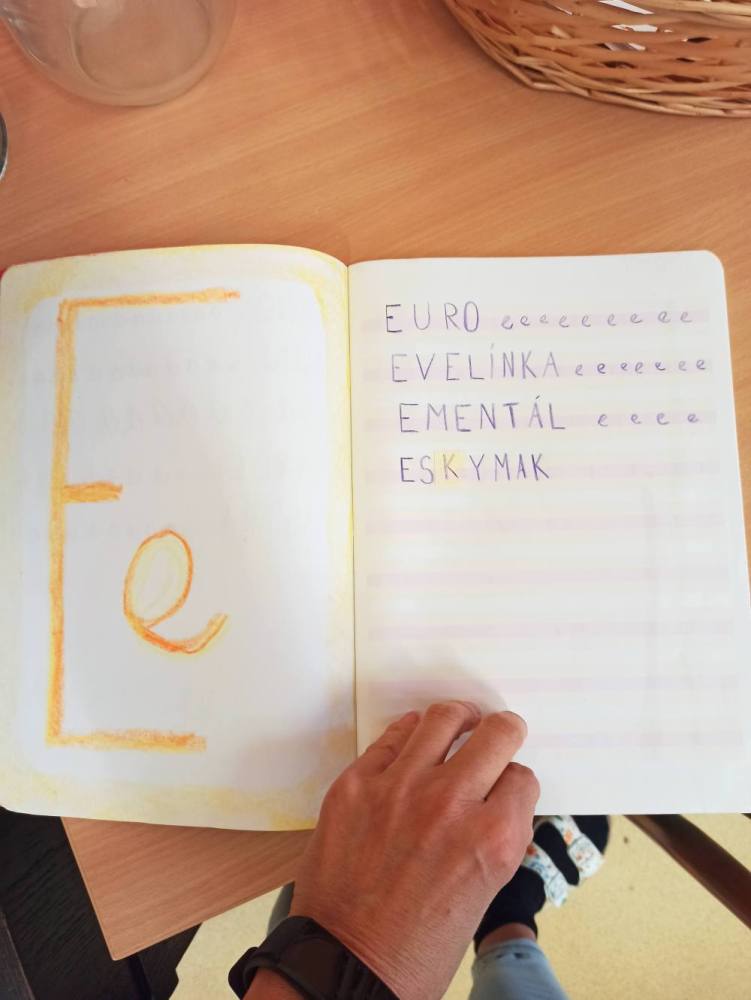 E
e
EURO e e e e e e e e e
EVELÍNKA e e e e e e e
EMENTÁL e e e e
ESKYMAK